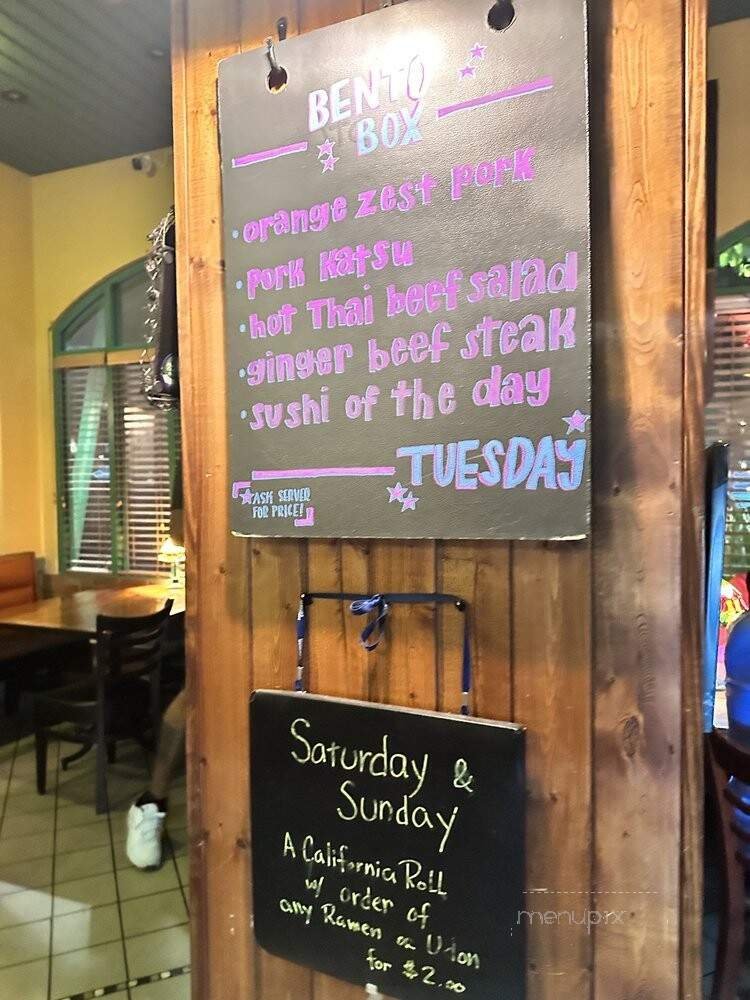 BENTO
BOX
• orange zest pork
• pork katsu
• hot Thai beef salad
• ginger beef steak
• sushi of the day
TUESDAY
ASK SERVER
FOR PRICE!
Saturday &
Sunday
A California Roll
w/ order of
any Ramen or Udon
for $2.00
menupix